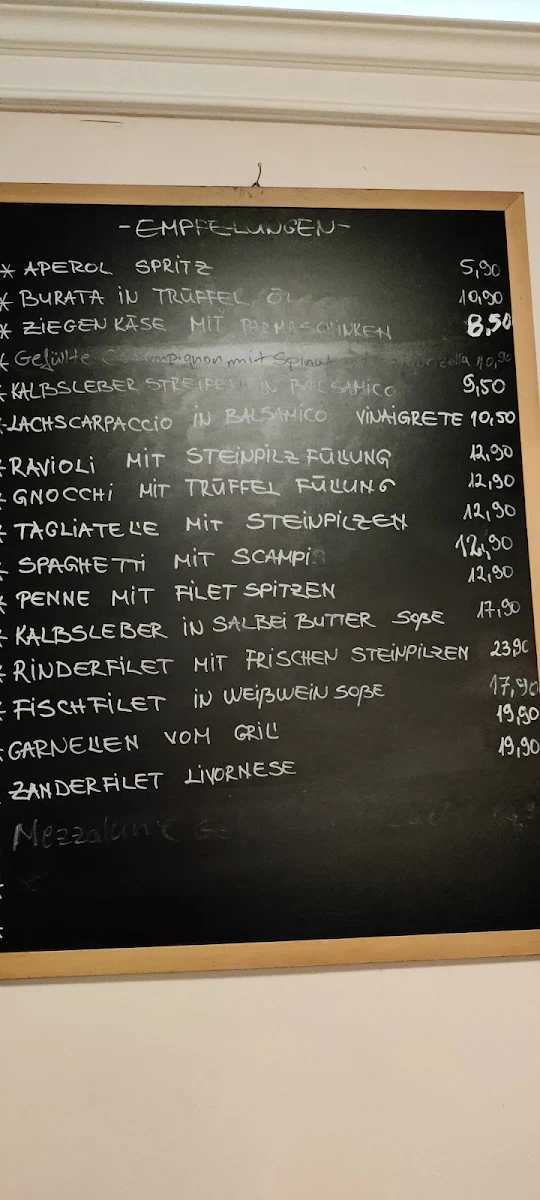 -EMPFELUNGEN-
* APEROL SPRITZ 5,90
* BURATA IN TRÜFFEL ÖL 10,90
* ZIEGENKÄSE MIT PARMASCHINKEN 8,50
* Gefüllte Champignon mit Spinat 10,90
* KALBSLEBER STREIFEN IN BALSAMICO 9,50
* LACHSCARPACCIO IN BALSAMICO VINAIGRETE 10,50
* RAVIOLI MIT STEINPILZ FÜLLUNG 12,90
* GNOCCHI MIT TRÜFFEL FÜLLUNG 12,90
* TAGLIATELLE MIT STEINPILZEN 12,90
* SPAGHETTI MIT SCAMPIS 12,90
* PENNE MIT FILET SPITZEN 12,90
* KALBSLEBER IN SALBEI BUTTER SOßE 17,90
* RINDERFILET MIT FRISCHEN STEINPILZEN 23,90
* FISCHFILET IN WEIßWEIN SOßE 17,90
* GARNELLEN VOM GRILL 19,90
* ZANDERFILET LIVORNESE 19,90
Mezzalune